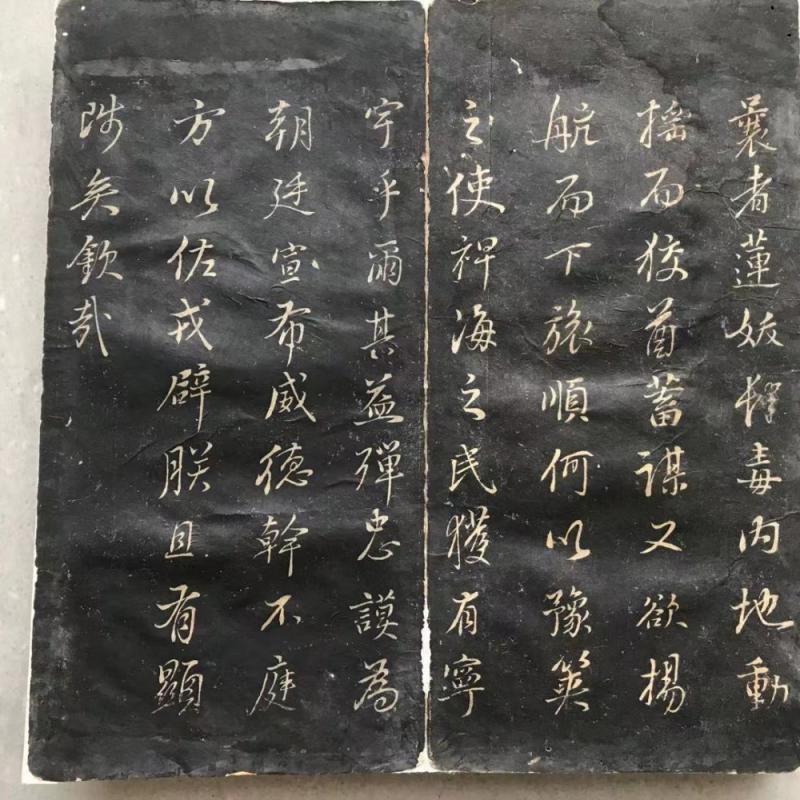 曩者蓮妖搖毒内地動
揺而狡酋蓄謀又欲揚
航而下旅順何以豫筴
之使裨海之民獲有寧
宇乎爾其益殫忠謨為
朝廷宣布威德幹不庭
方以佐戎辟朕且有顯
陟矣欽哉